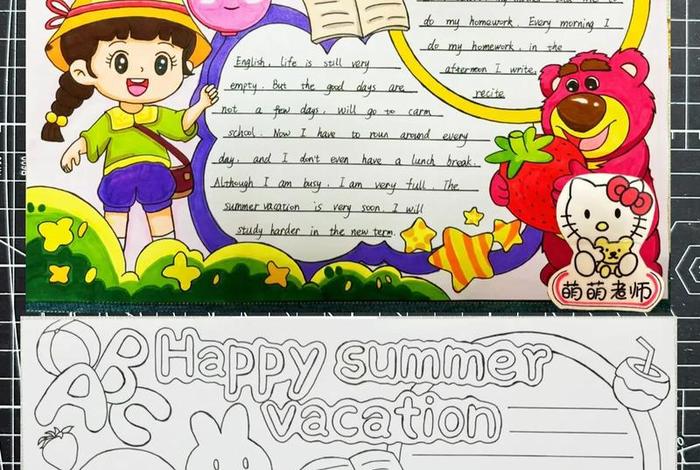 do my homework. Every morning I
do my homework, in the
afternoon I write,
recite
English, life is still very
empty. But the good days are
not a few days, will go to carm
school. Now I have to roun around every
day, and I don't even have a lunch break.
Although I am busy, I am very full. The
summer vacation is very soon. I will
study harder in the new term.
萌萌老师
ABC
Happy summer
vacation